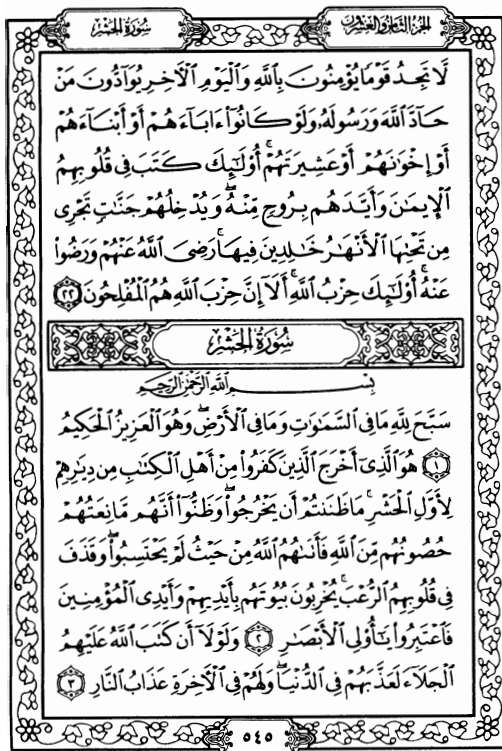 سُورَةُ الحَشْرِ الجُزْءُ الثَّامِنُ وَالعِشْرُونَ
لَّا تَجِدُ قَوْمًا يُؤْمِنُونَ بِٱللَّهِ وَٱلْيَوْمِ ٱلْآخِرِ يُوَآدُّونَ مَنْ
حَآدَّ ٱللَّهَ وَرَسُولَهُۥ وَلَوْ كَانُوٓا۟ ءَابَآءَهُمْ أَوْ أَبْنَآءَهُمْ
أَوْ إِخْوَٰنَهُمْ أَوْ عَشِيرَتَهُمْ ۚ أُو۟لَٰٓئِكَ كَتَبَ فِى قُلُوبِهِمُ
ٱلْإِيمَٰنَ وَأَيَّدَهُم بِرُوحٍ مِّنْهُ ۖ وَيُدْخِلُهُمْ جَنَّٰتٍ تَجْرِى
مِن تَحْتِهَا ٱلْأَنْهَٰرُ خَٰلِدِينَ فِيهَا ۚ رَضِىَ ٱللَّهُ عَنْهُمْ وَرَضُوا۟
عَنْهُ ۚ أُو۟لَٰٓئِكَ حِزْبُ ٱللَّهِ ۚ أَلَآ إِنَّ حِزْبَ ٱللَّهِ هُمُ ٱلْمُفْلِحُونَ ٢٢
سُورَةُ الحَشْرِ
بِسْمِ ٱللَّهِ ٱلرَّحْمَٰنِ ٱلرَّحِيمِ
سَبَّحَ لِلَّهِ مَا فِى ٱلسَّمَٰوَٰتِ وَمَا فِى ٱلْأَرْضِ ۖ وَهُوَ ٱلْعَزِيزُ ٱلْحَكِيمُ
١ هُوَ ٱلَّذِىٓ أَخْرَجَ ٱلَّذِينَ كَفَرُوا۟ مِنْ أَهْلِ ٱلْكِتَٰبِ مِن دِيَٰرِهِمْ
لِأَوَّلِ ٱلْحَشْرِ ۚ مَا ظَنَنتُمْ أَن يَخْرُجُوا۟ ۖ وَظَنُّوٓا۟ أَنَّهُم مَّانِعَتُهُمْ
حُصُونُهُم مِّنَ ٱللَّهِ فَأَتَىٰهُمُ ٱللَّهُ مِنْ حَيْثُ لَمْ يَحْتَسِبُوا۟ ۖ وَقَذَفَ
فِى قُلُوبِهِمُ ٱلرُّعْبَ ۚ يُخْرِبُونَ بُيُوتَهُم بِأَيْدِيهِمْ وَأَيْدِى ٱلْمُؤْمِنِينَ
فَٱعْتَبِرُوا۟ يَٰٓأُو۟لِى ٱلْأَبْصَٰرِ ٢ وَلَوْلَآ أَن كَتَبَ ٱللَّهُ عَلَيْهِمُ
ٱلْجَلَآءَ لَعَذَّبَهُمْ فِى ٱلدُّنْيَا ۖ وَلَهُمْ فِى ٱلْآخِرَةِ عَذَابُ ٱلنَّارِ ٣
٥٤٥